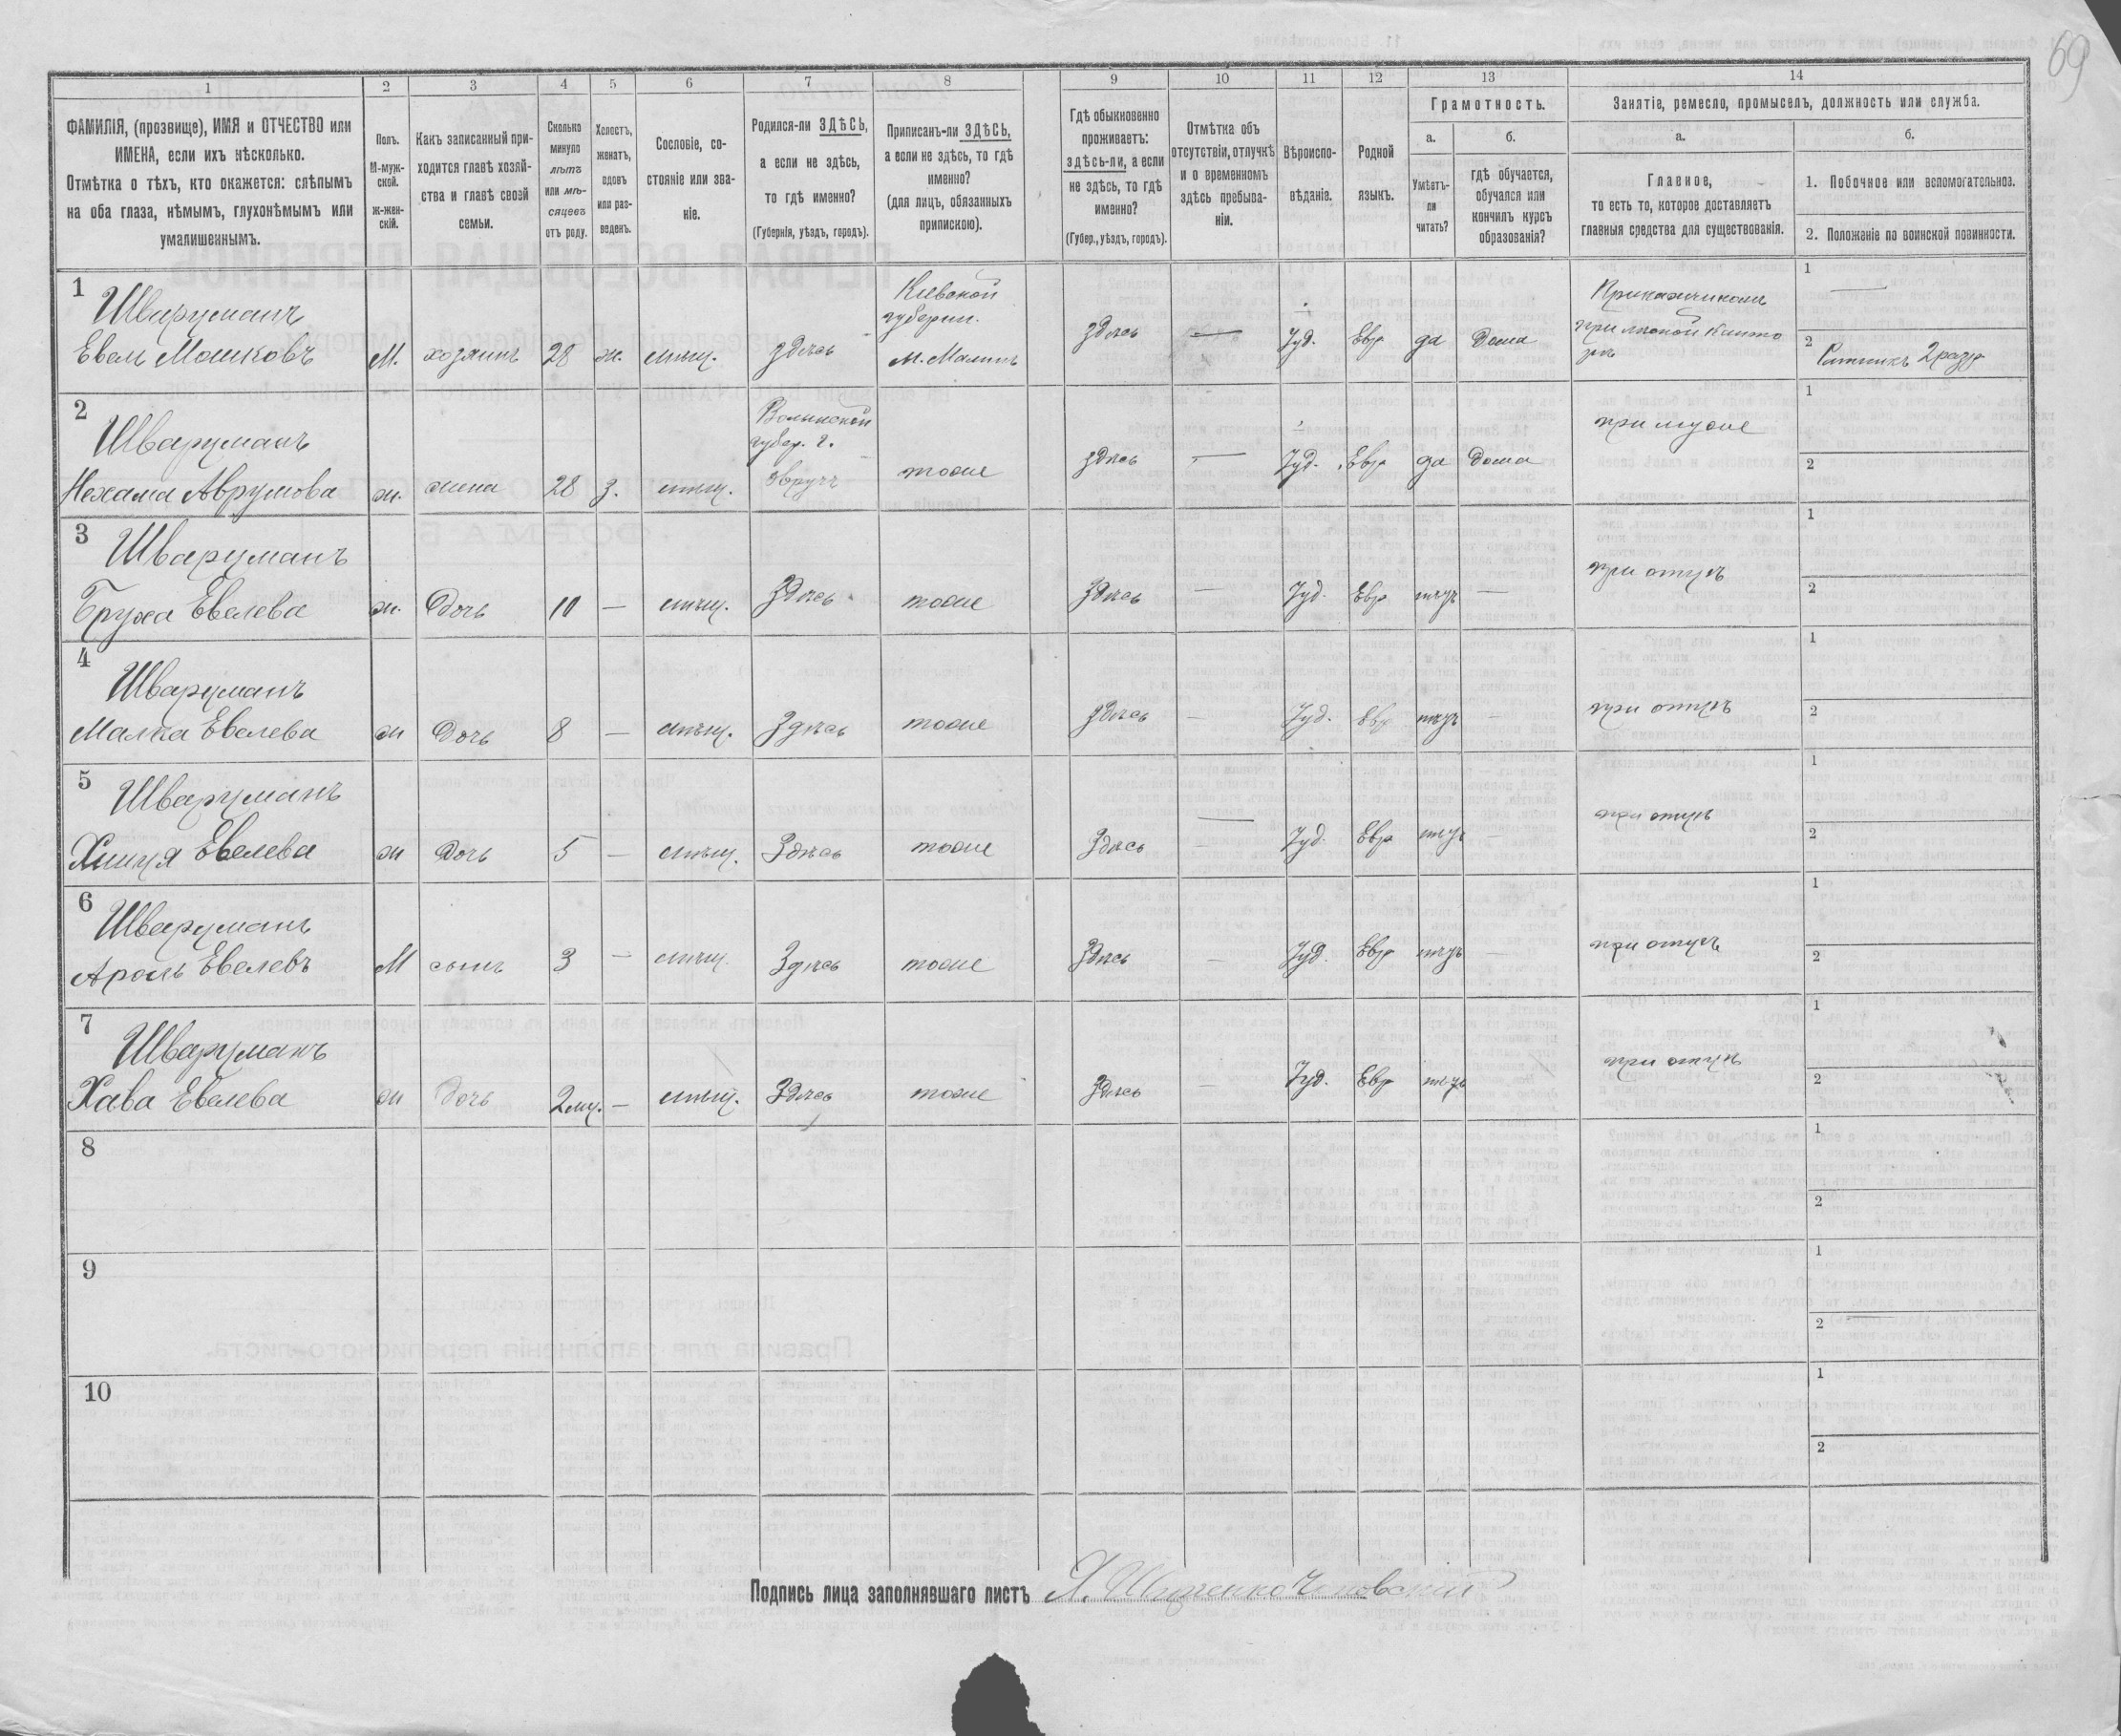 69
1 2 3 4 5 6 7 8 9 10 11 12 13 14
ФАМИЛІЯ, (прозвище), ИМЯ и ОТЧЕСТВО или
ИМЕНА, если ихъ нѣсколько.
Отмѣтка о тѣхъ, кто окажется: слѣпымъ
на оба глаза, нѣмымъ, глухонѣмымъ или
умалишеннымъ.
Полъ.
М-муж-
ской.
Ж-жен-
скій.
Какъ записанный при-
ходится главѣ хозяй-
ства и главѣ своей
семьи.
Сколько
минуло
лѣтъ
или мѣ-
сяцевъ
отъ роду.
Холостъ,
женатъ,
вдовъ
или раз-
веденъ.
Сословіе, со-
стояніе или зва-
ніе.
Родился-ли ЗДѢСЬ,
а если не здѣсь,
то гдѣ именно?
(Губернія, уѣздъ, городъ).
Приписанъ-ли ЗДѢСЬ,
а если не здѣсь, то гдѣ
именно?
(для лицъ, обязанныхъ
припискою).
Гдѣ обыкновенно
проживаетъ:
здѣсь-ли, а если
не здѣсь, то гдѣ
именно?
(Губер., уѣздъ, городъ).
Отмѣтка объ
отсутствіи, отлучкѣ
и о временномъ
здѣсь пребыва-
ніи.
Вѣроиспо-
вѣданіе.
Родной
языкъ.
Грамотность.
а.
Умѣетъ-
ли
читать?
б.
гдѣ обучается,
обучался или
кончилъ курсъ
образованія?
Занятіе, ремесло, промыселъ, должность или служба.
а.
Главное,
то есть то, которое доставляетъ
главныя средства для существованія.
б.
1. Побочное или вспомогательное.
2. Положеніе по воинской повинности.
1
Шварцманъ
Евель Мошковъ
М. хозяинъ 28 ж. мѣщ. здѣсь
Кіевской
губерніи.
м. Малинъ
здѣсь — Іуд. Евр да дома
Приказчикомъ
при лѣсной канто
рѣ
1 —
2 Ратникъ 2 разр
2
Шварцманъ
Нехама Аврумова
ж. жена 28 з. мѣщ.
Волынской
губер. г.
Овручъ
тоже здѣсь — Іуд. Евр да дома при мужѣ
1
2
3
Шварцманъ
Бруха Евелева
ж. дочь 10 — мѣщ. здѣсь тоже здѣсь — Іуд. Евр нѣтъ — при отцѣ
1
2
4
Шварцманъ
Малка Евелева
ж дочь 8 — мѣщ. Здѣсь тоже здѣсь — Іуд. Евр нѣтъ — при отцѣ
1
2
5
Шварцманъ
Евелева
ж дочь 5 — мѣщ. Здѣсь тоже Здѣсь — Іуд. Евр нѣтъ — при отцѣ
1
2
6
Шварцманъ
Аронъ Евелевъ
М сынъ 3 — мѣщ. Здѣсь тоже Здѣсь — Іуд. Евр нѣтъ — при отцѣ
1
2
7
Шварцманъ
Хава Евелева
ж дочь 2 мц. — мѣщ. Здѣсь тоже Здѣсь — Іуд. Евр нѣтъ при отцѣ
1
2
8
1
2
9
1
2
10
1
2
Подпись лица заполнявшаго листъ